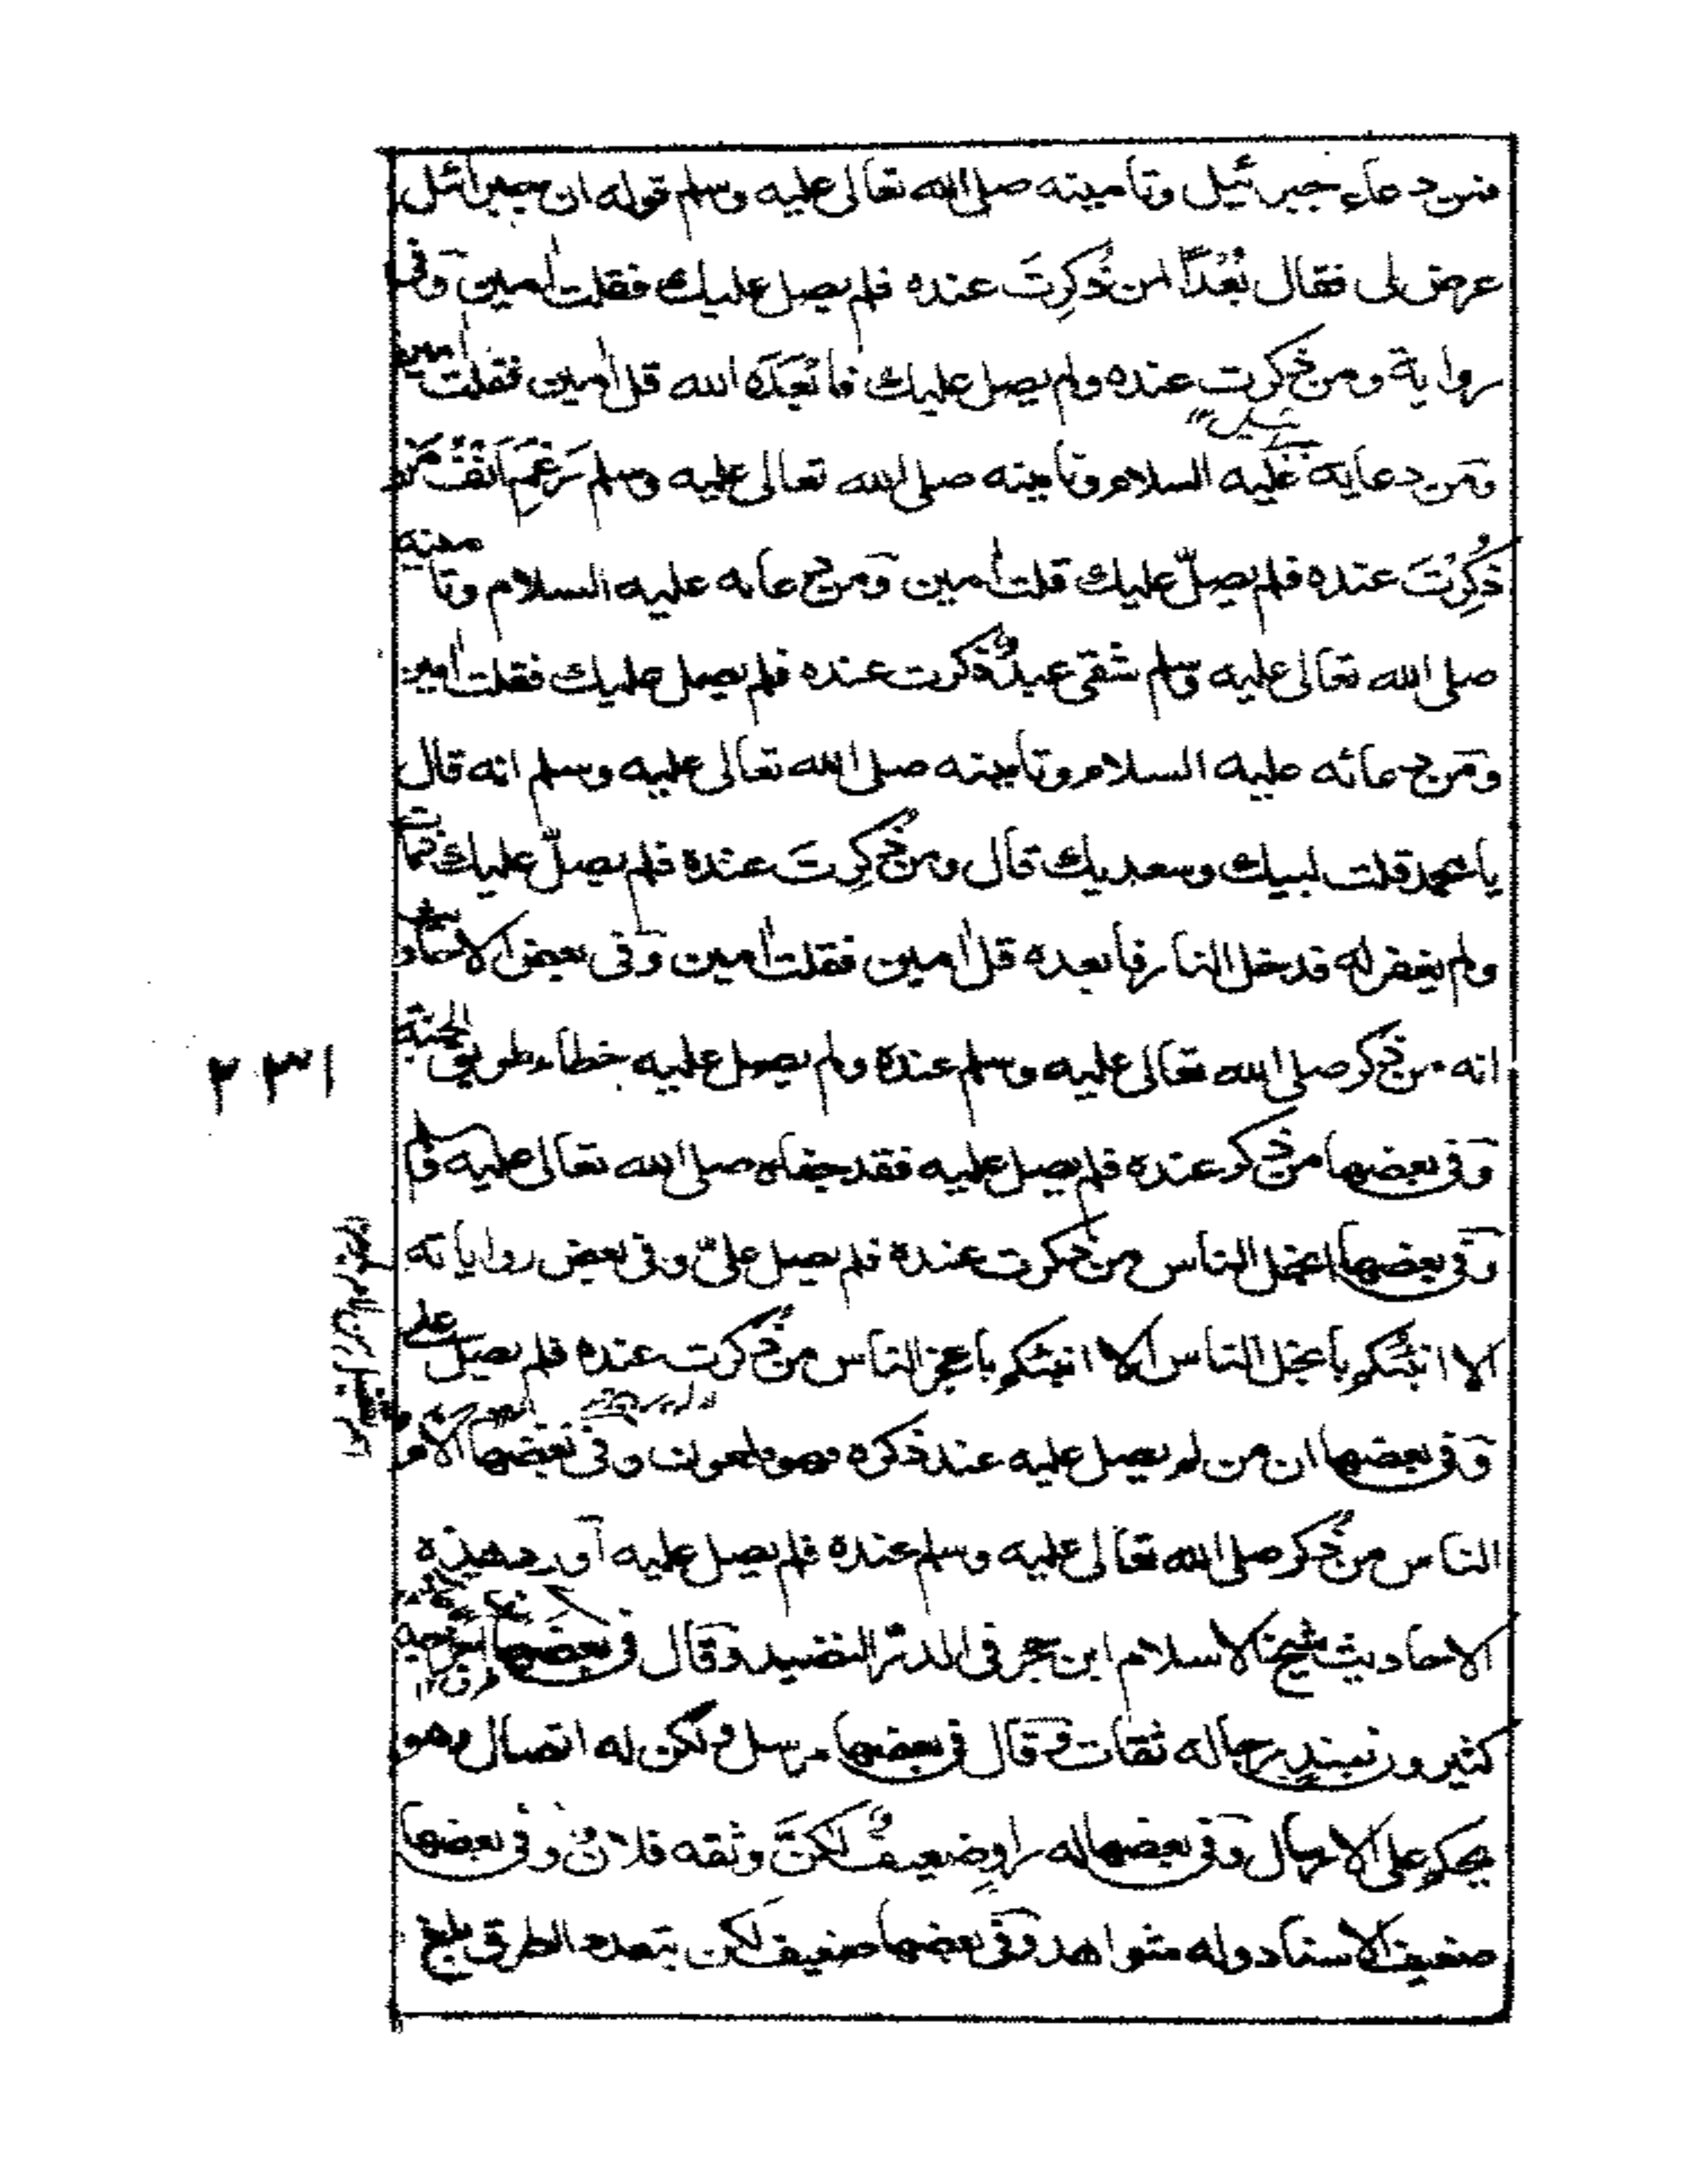 فمن دعاء جبرئيل وتامينه صلى الله تعالى عليه وسلم قوله ان جبرائيل
عرض لى فقال بُعْدًا لمن ذُكِرتَ عنده فلم يصل عليك فقلت اٰمين وفى
رواية ومن ذكرت عنده ولم يصل عليك فابْعَدَه الله قل اٰمين فقلت اٰمين
ومن دعايه عليه السلام وتامينه صلى الله تعالى عليه وسلم رَغِمَ اَنْفُ مَن
ذُكِرْتَ عنده فلم يصلّ عليك قلت اٰمين ومن دعائه عليه السلام وتامينه
صلى الله تعالى عليه وسلم شقى عبدٌ ذكرت عنده فلم يصل عليك فقلت اٰمين
ومن دعائه عليه السلام وتامينه صلى الله تعالى عليه وسلم انه قال
يا محمد قلت لبيك وسعديك قال ومن ذُكِرتَ عنده فلم يصلّ عليك فمات
ولم يغفر له فدخل النار فابعده قل اٰمين فقلت اٰمين وفى بعض الاحاديث
انه من ذكر صلى الله تعالى عليه وسلم عنده ولم يصل عليه خطاء طريق الجنة
وفى بعضها من ذكر عنده فلم يصل عليه فقد جفاه صلى الله تعالى عليه وسلم
وفى بعضها ابخل الناس من ذكرت عنده فلم يصل علىّ وفى بعض رواياته
الا انبئكم بابخل الناس الا انبئكم باعجز الناس من ذكرت عنده فلم يصل على
وفى بعضها ان من لم يصل عليه عند ذكره فهو ملعون وفى بعضها الأم
الناس من ذُكر صلى الله تعالى عليه وسلم عنده فلم يصل عليه اورد هذه
الاحاديث شيخ الاسلام ابن حجر فى الدر النضيد وقال فى بعضها
كثيرون بسندٍ رجاله ثقات وقال فى بعضها مرسل ولكن له اتصال وهو
يحكم على الارسال وفى بعضها له راوٍ ضعيفٌ لكنَّ وثقه فلانٌ وفى بعضها
ضعيف الاسناد وله شواهد وفى بعضها ضعيف لكن بتعدد الطرق بلغ
٢٣١